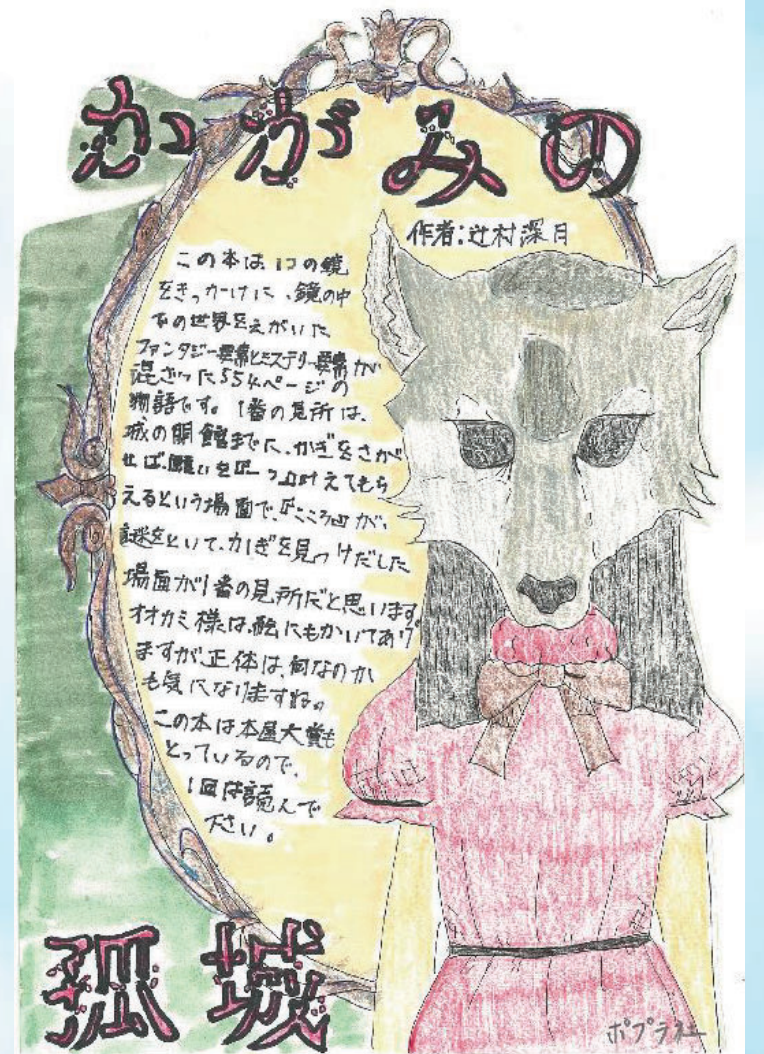 かがみの
作者:辻村深月
この本は、1つの鏡
をきっかけに、鏡の中
での世界をえがいた
ファンタジー要素とミステリー要素が
混ざった554ページの
物語です。1番の見所は、
城の閉館までに、かぎをさが
せば、願いを『一つ』叶えてもら
えるという場面で、『こころ』が、
謎をといて、かぎを見つけだした
場面が1番の見所だと思います。
オオカミ様は、絵にもかいてあり
ますが、正体は、何なのか
も気になりますね。
この本は本屋大賞も
とっているので、
1回は読んで
下さい。
孤城
ポプラ社